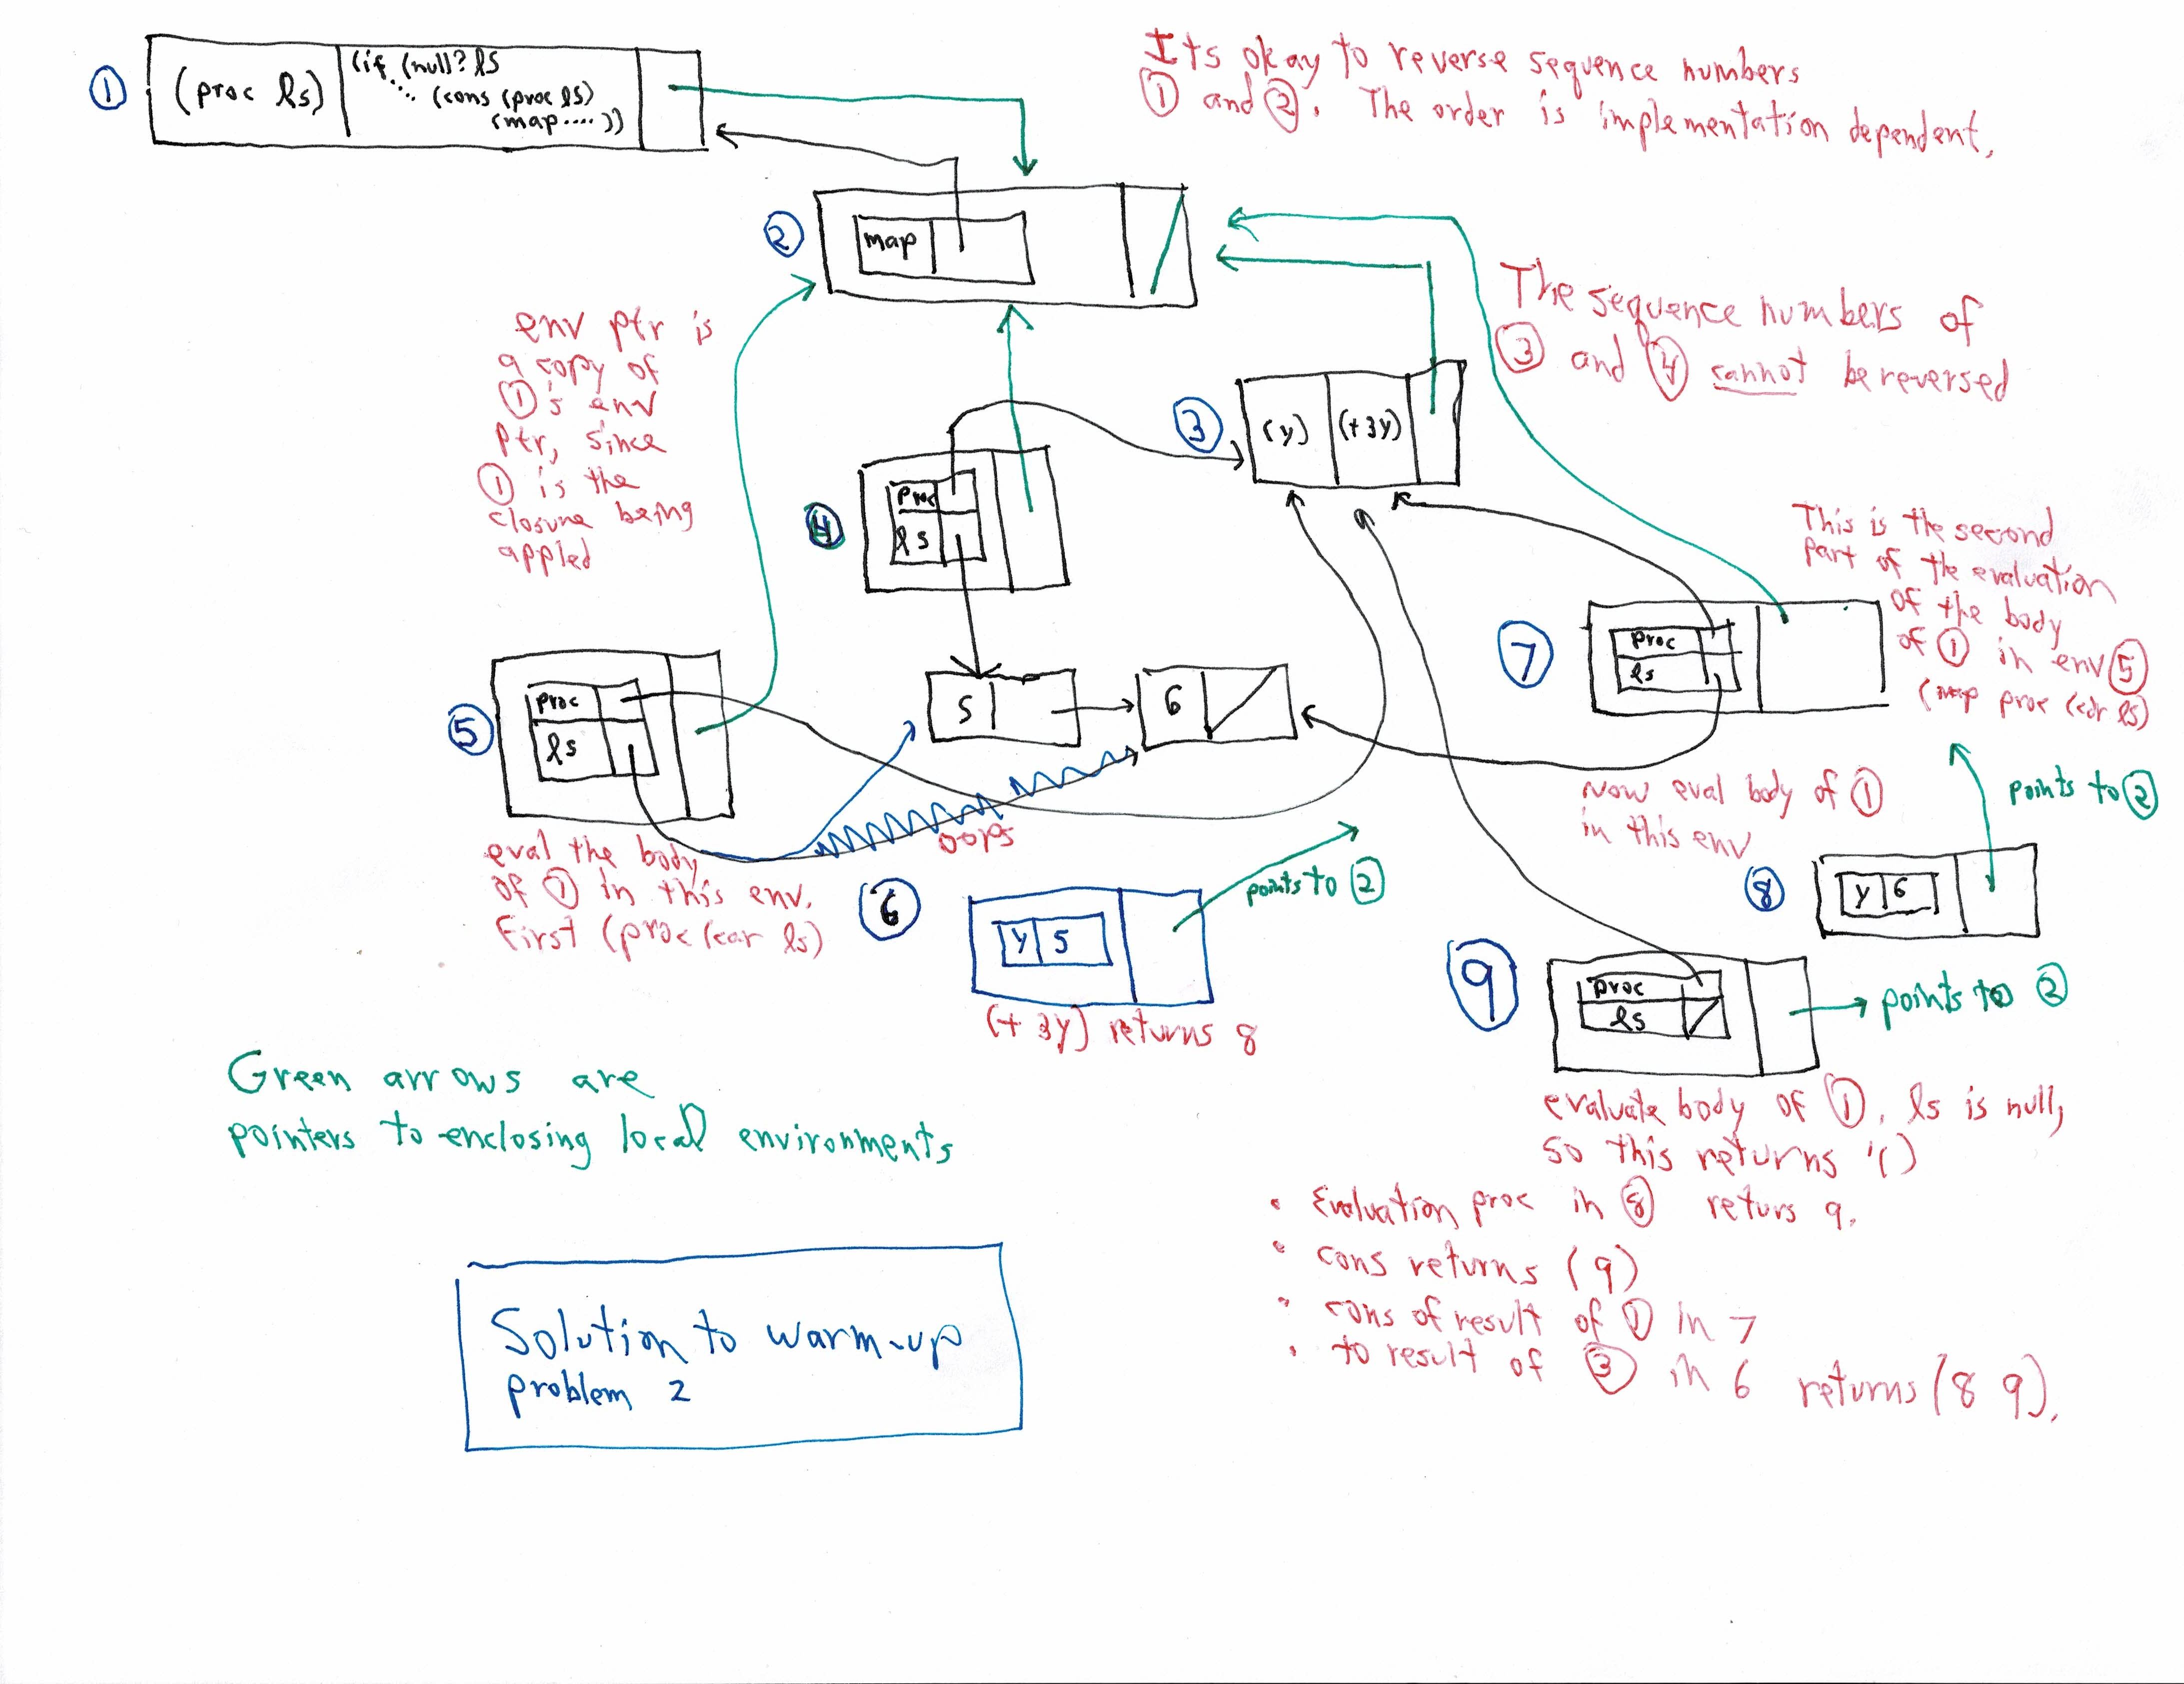 ①
(proc ls)
(if (null? ls
(cons (proc ls)
(map ....))
Its okay to reverse sequence numbers
① and ②. The order is implementation dependent.
②
map
env ptr is
a copy of
①'s env
ptr, since
① is the
closure being
appled
The sequence numbers of
③ and ④ cannot be reversed
③
(y)
(+ 3y)
④
proc
ls
This is the second
part of the evaluation
of the body
of ① in env ⑤
(map proc (cdr ls)
⑤
proc
ls
5
6
⑦
proc
ls
oops
eval the body
of ① in this env.
First (proc (car ls)
now eval body of ①
in this env
points to ②
⑥
y 5
points to ②
(+ 3y) returns 8
⑧
y 6
⑨
proc
ls
points to ②
Green arrows are
pointers to enclosing local environments
evaluate body of ①. ls is null,
so this returns '()
• Evaluation proc in ⑧ returs 9.
• cons returns (9)
• cons of result of ① in 7
• to result of ③ in 6 returns (8 9).
Solution to warm-up
problem 2